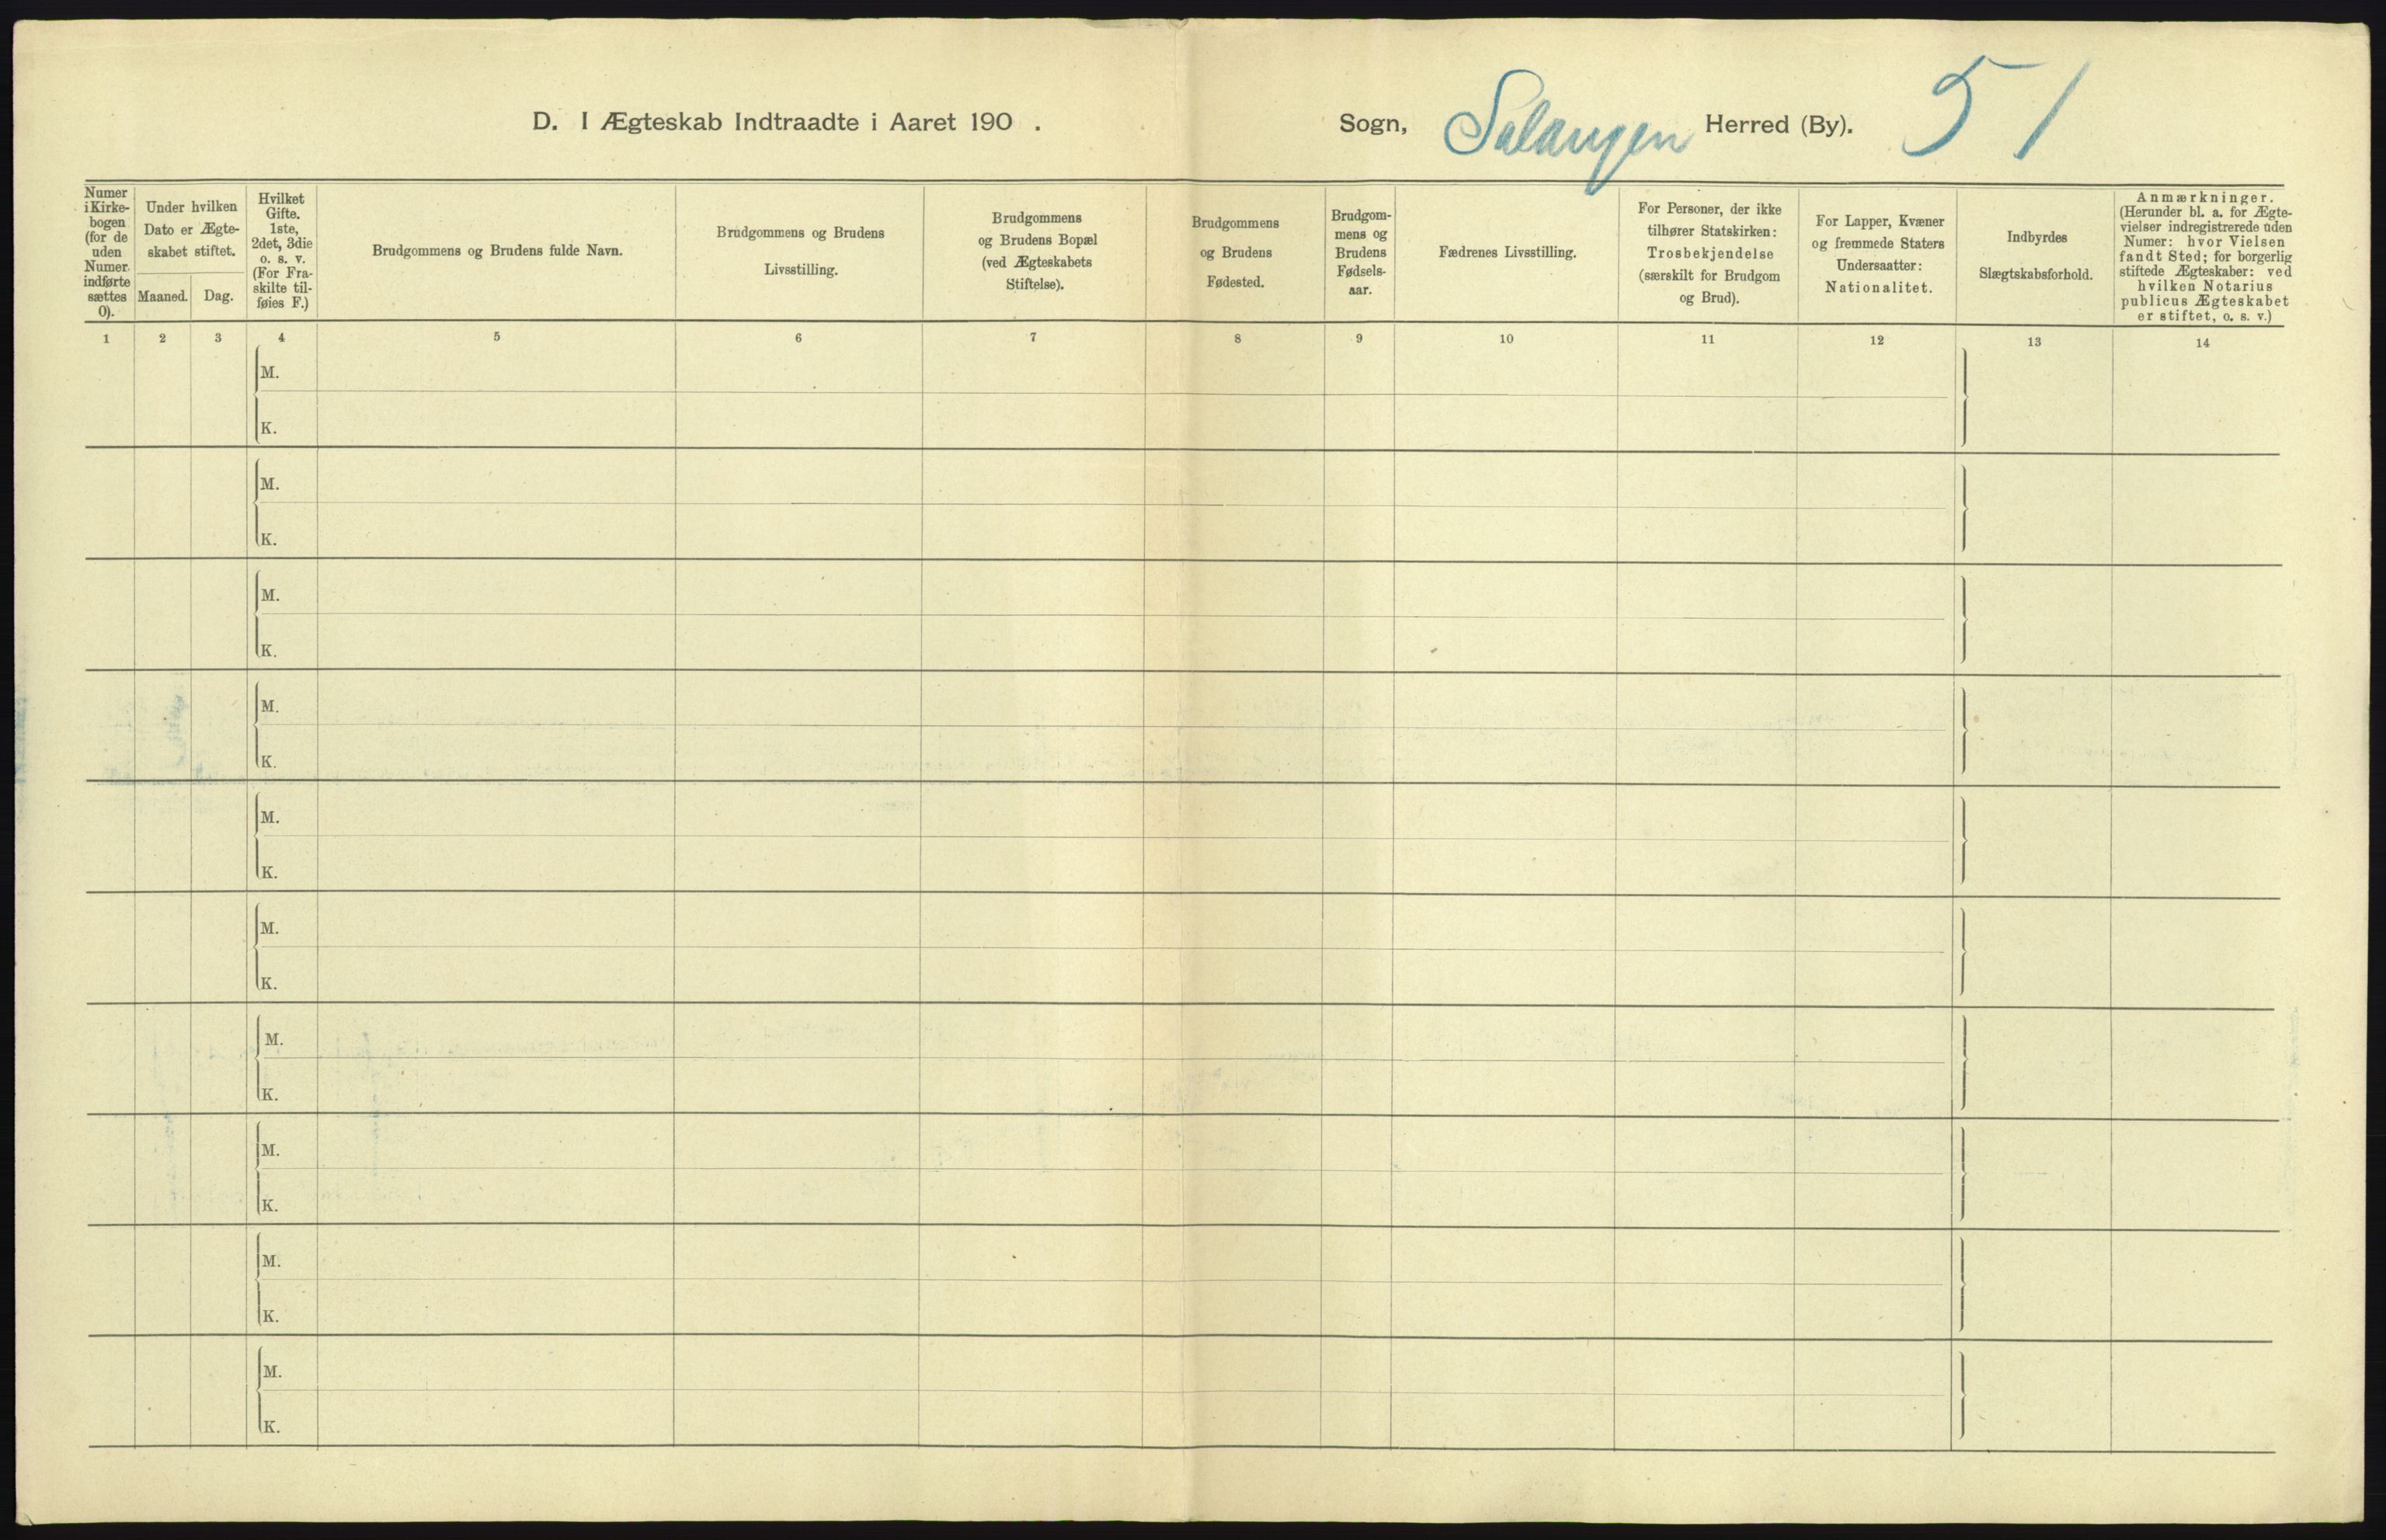 D. I Ægteskab Indtraadte i Aaret 190 . Sogn, Salangen Herred (By). 51
Numer
i Kirke-
bogen
(for de
uden
Numer
indførte
sættes
0).
Under hvilken
Dato er Ægte-
skabet stiftet.
Maaned.
Dag.
Hvilket
Gifte.
1ste,
2det, 3die
o. s. v.
(For Fra-
skilte til-
føies F.)
Brudgommens og Brudens fulde Navn.
Brudgommens og Brudens
Livsstilling.
Brudgommens
og Brudens Bopæl
(ved Ægteskabets
Stiftelse).
Brudgommens
og Brudens
Fødested.
Brudgom-
mens og
Brudens
Fødsels-
aar.
Fædrenes Livsstilling.
For Personer, der ikke
tilhører Statskirken:
Trosbekjendelse
(særskilt for Brudgom
og Brud).
For Lapper, Kvæner
og fremmede Staters
Undersaatter:
Nationalitet.
Indbyrdes
Slægtskabsforhold.
Anmærkninger.
(Herunder bl. a. for Ægte-
vielser indregistrerede uden
Numer: hvor Vielsen
fandt Sted; for borgerlig
stiftede Ægteskaber: ved
hvilken Notarius
publicus Ægteskabet
er stiftet, o. s. v.)
1 2 3 4 5 6 7 8 9 10 11 12 13 14
M.
K.
M.
K.
M.
K.
M.
K.
M.
K.
M.
K.
M.
K.
M.
K.
M.
K.
M.
K.